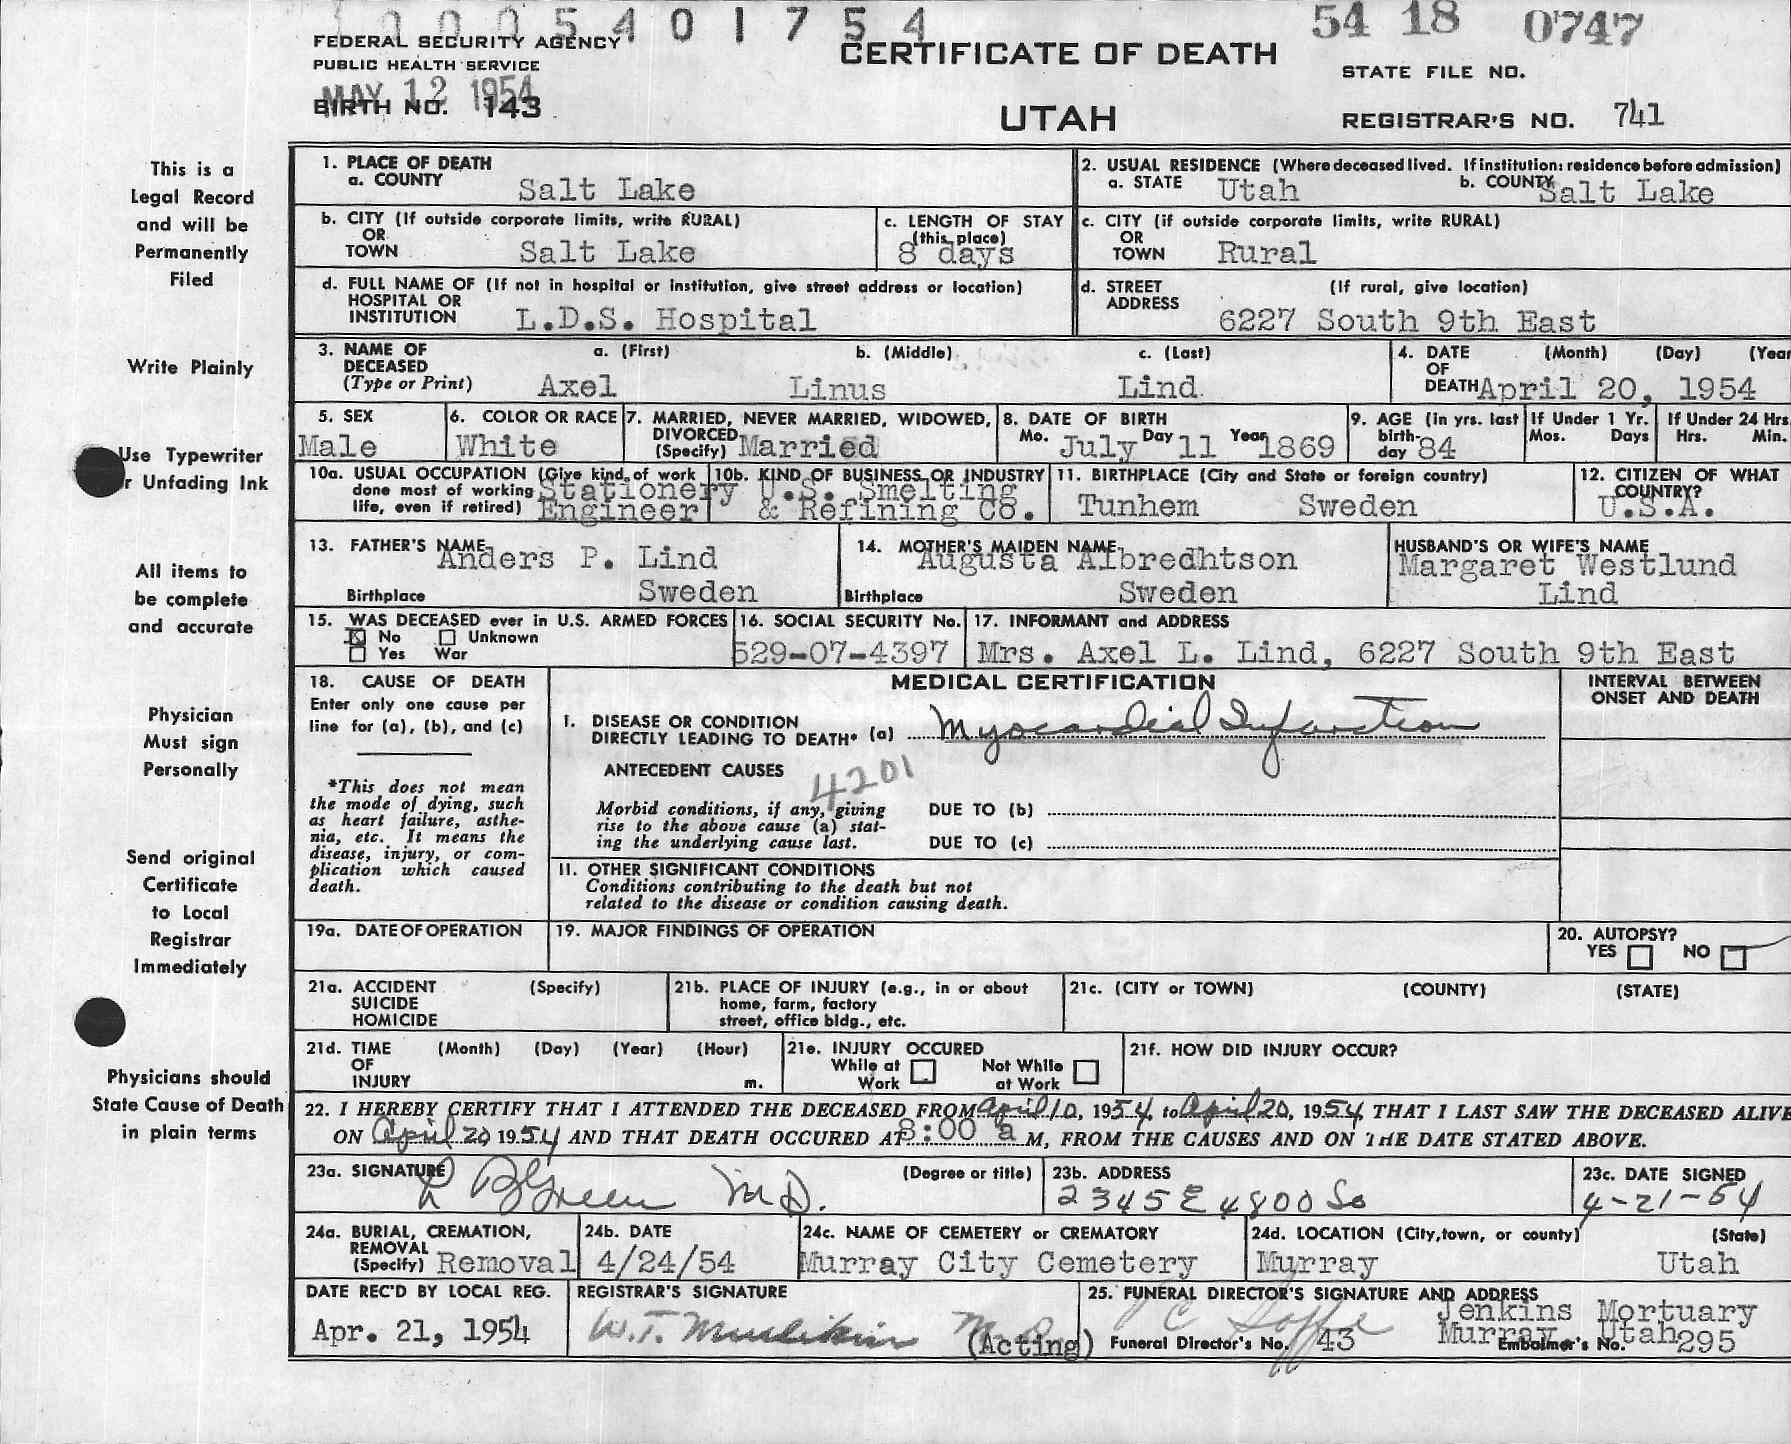 1 0 0 0 5 4 0 1 7 5 4
54 18 0747
FEDERAL SECURITY AGENCY
PUBLIC HEALTH SERVICE
CERTIFICATE OF DEATH
STATE FILE NO.
MAY 12 1954
BIRTH NO. 143
UTAH
REGISTRAR'S NO. 741
This is a
Legal Record
and will be
Permanently
Filed
Write Plainly
Use Typewriter
r Unfading Ink
All items to
be complete
and accurate
Physician
Must sign
Personally
Send original
Certificate
to Local
Registrar
Immediately
Physicians should
State Cause of Death
in plain terms
1. PLACE OF DEATH
a. COUNTY Salt Lake
2. USUAL RESIDENCE (Where deceased lived. If institution: residence before admission)
a. STATE Utah b. COUNTY Salt Lake
b. CITY (If outside corporate limits, write RURAL)
OR
TOWN Salt Lake
c. LENGTH OF STAY
(this place)
8 days
c. CITY (if outside corporate limits, write RURAL)
OR
TOWN Rural
d. FULL NAME OF (If not in hospital or institution, give street address or location)
HOSPITAL OR
INSTITUTION L.D.S. Hospital
d. STREET (If rural, give location)
ADDRESS
6227 South 9th East
3. NAME OF a. (First) b. (Middle) c. (Last)
DECEASED
(Type or Print) Axel Linus Lind
4. DATE (Month) (Day) (Year
OF
DEATH April 20, 1954
5. SEX
Male
6. COLOR OR RACE
White
7. MARRIED, NEVER MARRIED, WIDOWED,
DIVORCED
(Specify) Married
8. DATE OF BIRTH
Mo. July Day 11 Year 1869
9. AGE (in yrs. last
birth-
day 84
If Under 1 Yr.
Mos. Days
If Under 24 Hrs.
Hrs. Min.
10a. USUAL OCCUPATION (Give kind of work
done most of working
life, even if retired) Stationery
Engineer
10b. KIND OF BUSINESS OR INDUSTRY
U.S. Smelting
& Refining Co.
11. BIRTHPLACE (City and State or foreign country)
Tunhem Sweden
12. CITIZEN OF WHAT
COUNTRY?
U.S.A.
13. FATHER'S NAME
Anders P. Lind
Birthplace Sweden
14. MOTHER'S MAIDEN NAME
Augusta Albredhtson
Birthplace Sweden
HUSBAND'S OR WIFE'S NAME
Margaret Westlund
Lind
15. WAS DECEASED ever in U.S. ARMED FORCES
No Unknown
Yes War
16. SOCIAL SECURITY No.
529-07-4397
17. INFORMANT and ADDRESS
Mrs. Axel L. Lind, 6227 South 9th East
18. CAUSE OF DEATH
Enter only one cause per
line for (a), (b), and (c)
*This does not mean
the mode of dying, such
as heart failure, asthe-
nia, etc. It means the
disease, injury, or com-
plication which caused
death.
MEDICAL CERTIFICATION
INTERVAL BETWEEN
ONSET AND DEATH
I. DISEASE OR CONDITION
DIRECTLY LEADING TO DEATH* (a) Myocardial Infarction
ANTECEDENT CAUSES
4201
Morbid conditions, if any, giving
rise to the above cause (a) stat-
ing the underlying cause last.
DUE TO (b)
DUE TO (c)
II. OTHER SIGNIFICANT CONDITIONS
Conditions contributing to the death but not
related to the disease or condition causing death.
19a. DATE OF OPERATION
19. MAJOR FINDINGS OF OPERATION
20. AUTOPSY?
YES NO
21a. ACCIDENT (Specify)
SUICIDE
HOMICIDE
21b. PLACE OF INJURY (e.g., in or about
home, farm, factory
street, office bldg., etc.
21c. (CITY or TOWN) (COUNTY) (STATE)
21d. TIME (Month) (Day) (Year) (Hour)
OF
INJURY m.
21e. INJURY OCCURED
While at Work
Not While at Work
21f. HOW DID INJURY OCCUR?
22. I HEREBY CERTIFY THAT I ATTENDED THE DECEASED FROM April 10, 1954, to April 20, 1954, THAT I LAST SAW THE DECEASED ALIVE
ON April 20 1954 AND THAT DEATH OCCURED AT 8:00 a M, FROM THE CAUSES AND ON THE DATE STATED ABOVE.
23a. SIGNATURE (Degree or title)
L B Green M.D.
23b. ADDRESS
2345 E 4800 So
23c. DATE SIGNED
4-21-54
24a. BURIAL, CREMATION,
REMOVAL
(Specify) Removal
24b. DATE
4/24/54
24c. NAME OF CEMETERY or CREMATORY
Murray City Cemetery
24d. LOCATION (City, town, or county) (State)
Murray Utah
DATE REC'D BY LOCAL REG.
Apr. 21, 1954
REGISTRAR'S SIGNATURE
W.T.
(Acting)
25. FUNERAL DIRECTOR'S SIGNATURE AND ADDRESS
Jenkins Mortuary
Murray Utah
Funeral Director's No. 43 Embalmer's No. 295